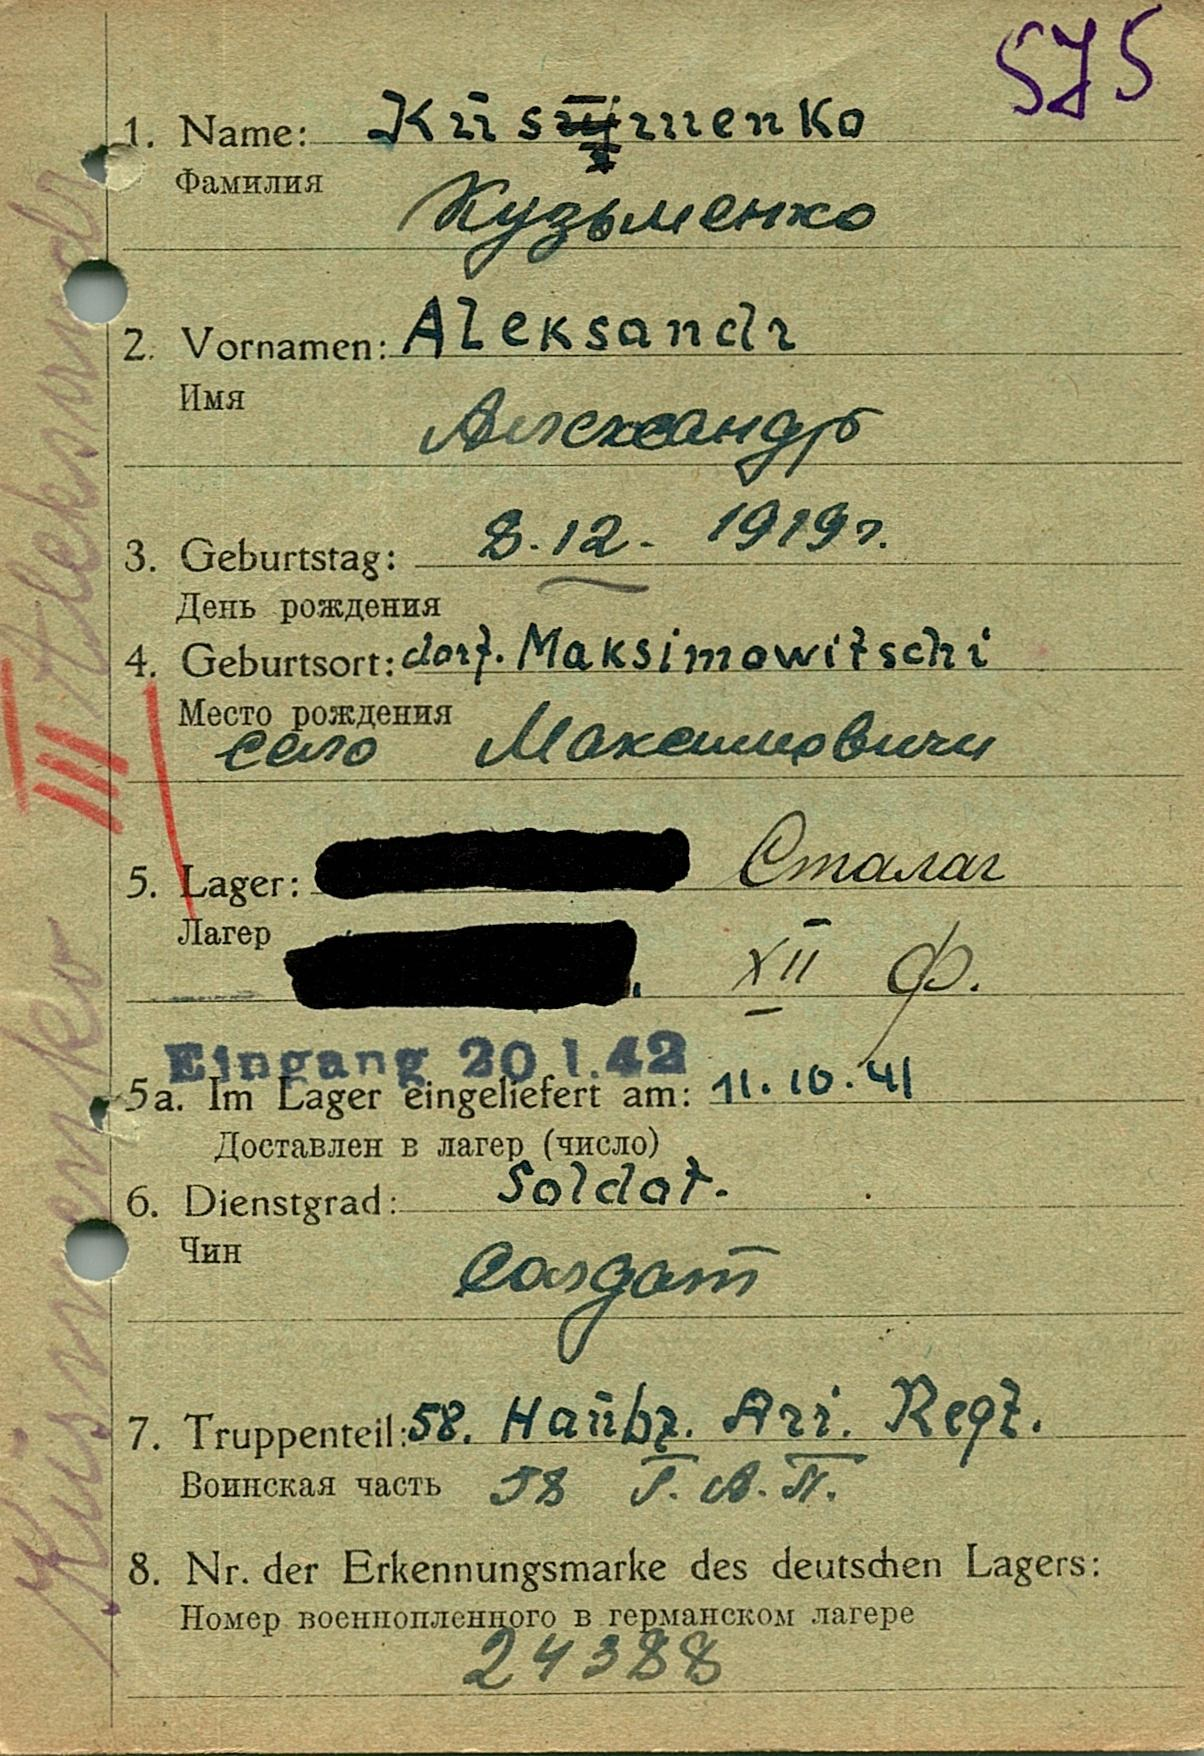 575
1. Name: Kūsmenko
Фамилия
Кузьменко
2. Vornamen: Aleksandr
Имя
Александр
3. Geburtstag: 8.12. 1919 г.
День рождения
4. Geburtsort: dorf. Maksimowitschi
Место рождения
село Максимовичи
5. Lager: Сталаг
Лагер
XII Ф.
Eingang 20.1.42
5a. Im Lager eingeliefert am: 11.10.41
Доставлен в лагер (число)
6. Dienstgrad: Soldat.
Чин
Солдат
7. Truppenteil: 58. Haūbz. Ari. Regt.
Воинская часть 58 Г.А.П.
8. Nr. der Erkennungsmarke des deutschen Lagers:
Номер военнопленного в германском лагере
24388
Küsmenko Aleksandr
III